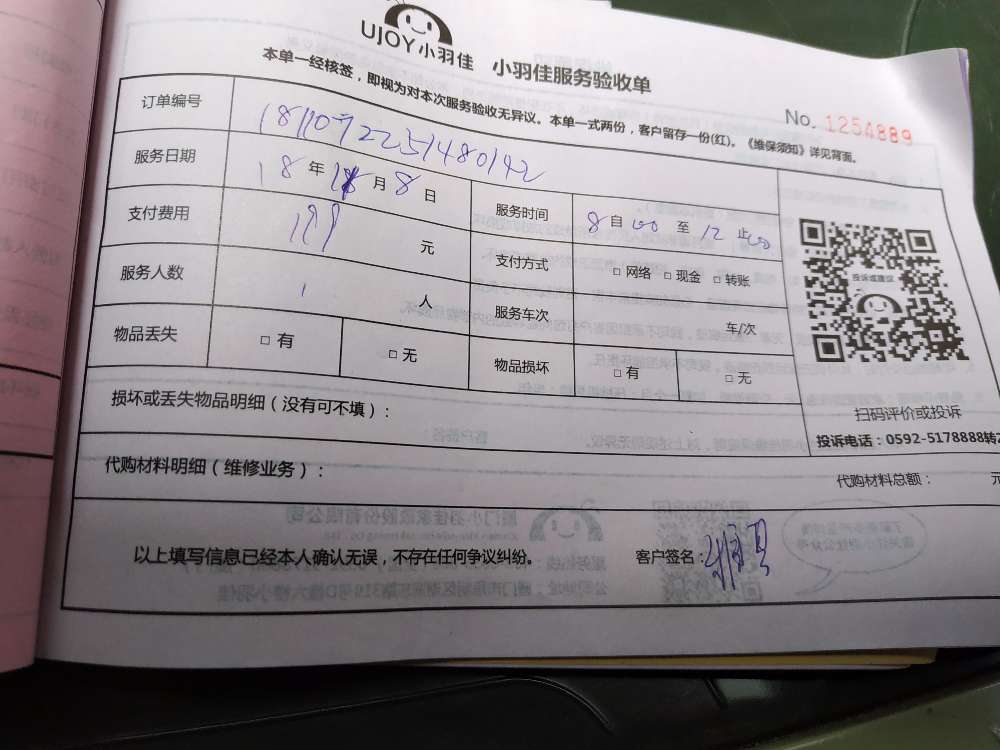 UJOY小羽佳 小羽佳服务验收单
本单一经核签，即视为对本次服务验收无异议。本单一式两份，客户留存一份(红)。《维保须知》详见背面。
No. 1254889
订单编号 1811072251480142
服务日期 18 年 11 月 8 日 服务时间 8 自 00 至 12 止 00
支付费用 199 元 支付方式 □ 网络 □ 现金 □ 转账
服务人数 1 人 服务车次 车/次
物品丢失 □ 有 □ 无 物品损坏 □ 有 □ 无
投诉或建议
扫码评价或投诉
投诉电话：0592-5178888转
损坏或丢失物品明细（没有可不填）：
代购材料明细（维修业务）： 代购材料总额： 元
以上填写信息已经本人确认无误，不存在任何争议纠纷。 客户签名：